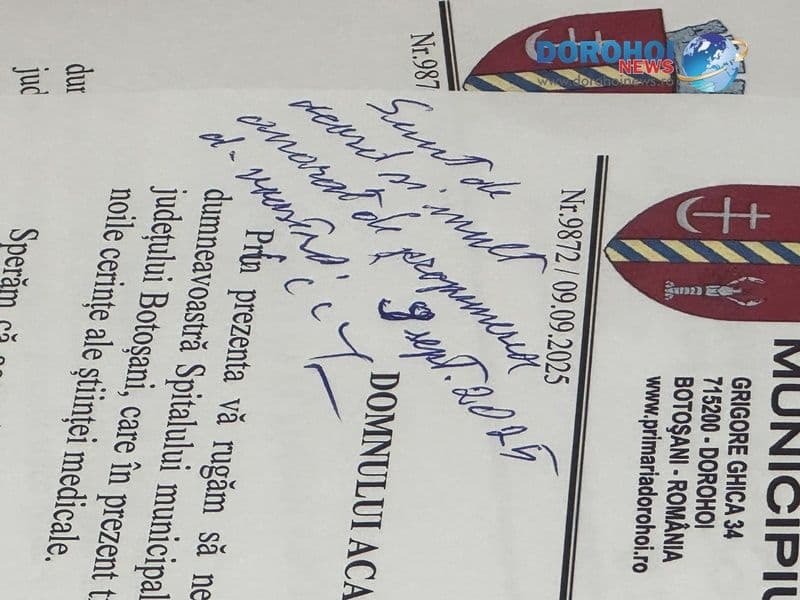 DOROHOI
NEWS
www.dorohoinews.ro
MUNICIPIU
GRIGORE GHICA 34
715200 - DOROHOI
BOTOȘANI - ROMÂNIA
www.primariadorohoi.ro
Nr.987
Nr.9872 / 09.09.2025
Sunt de
acord și mult
onorat de propunerea
d-voastră.
9 sept. 2025
DOMNULUI ACA
Prin prezenta vă rugăm să ne
dumneavoastră Spitalului municipal
județului Botoșani, care în prezent t
noile cerințe ale științei medicale.
Sperăm că
dur
jud